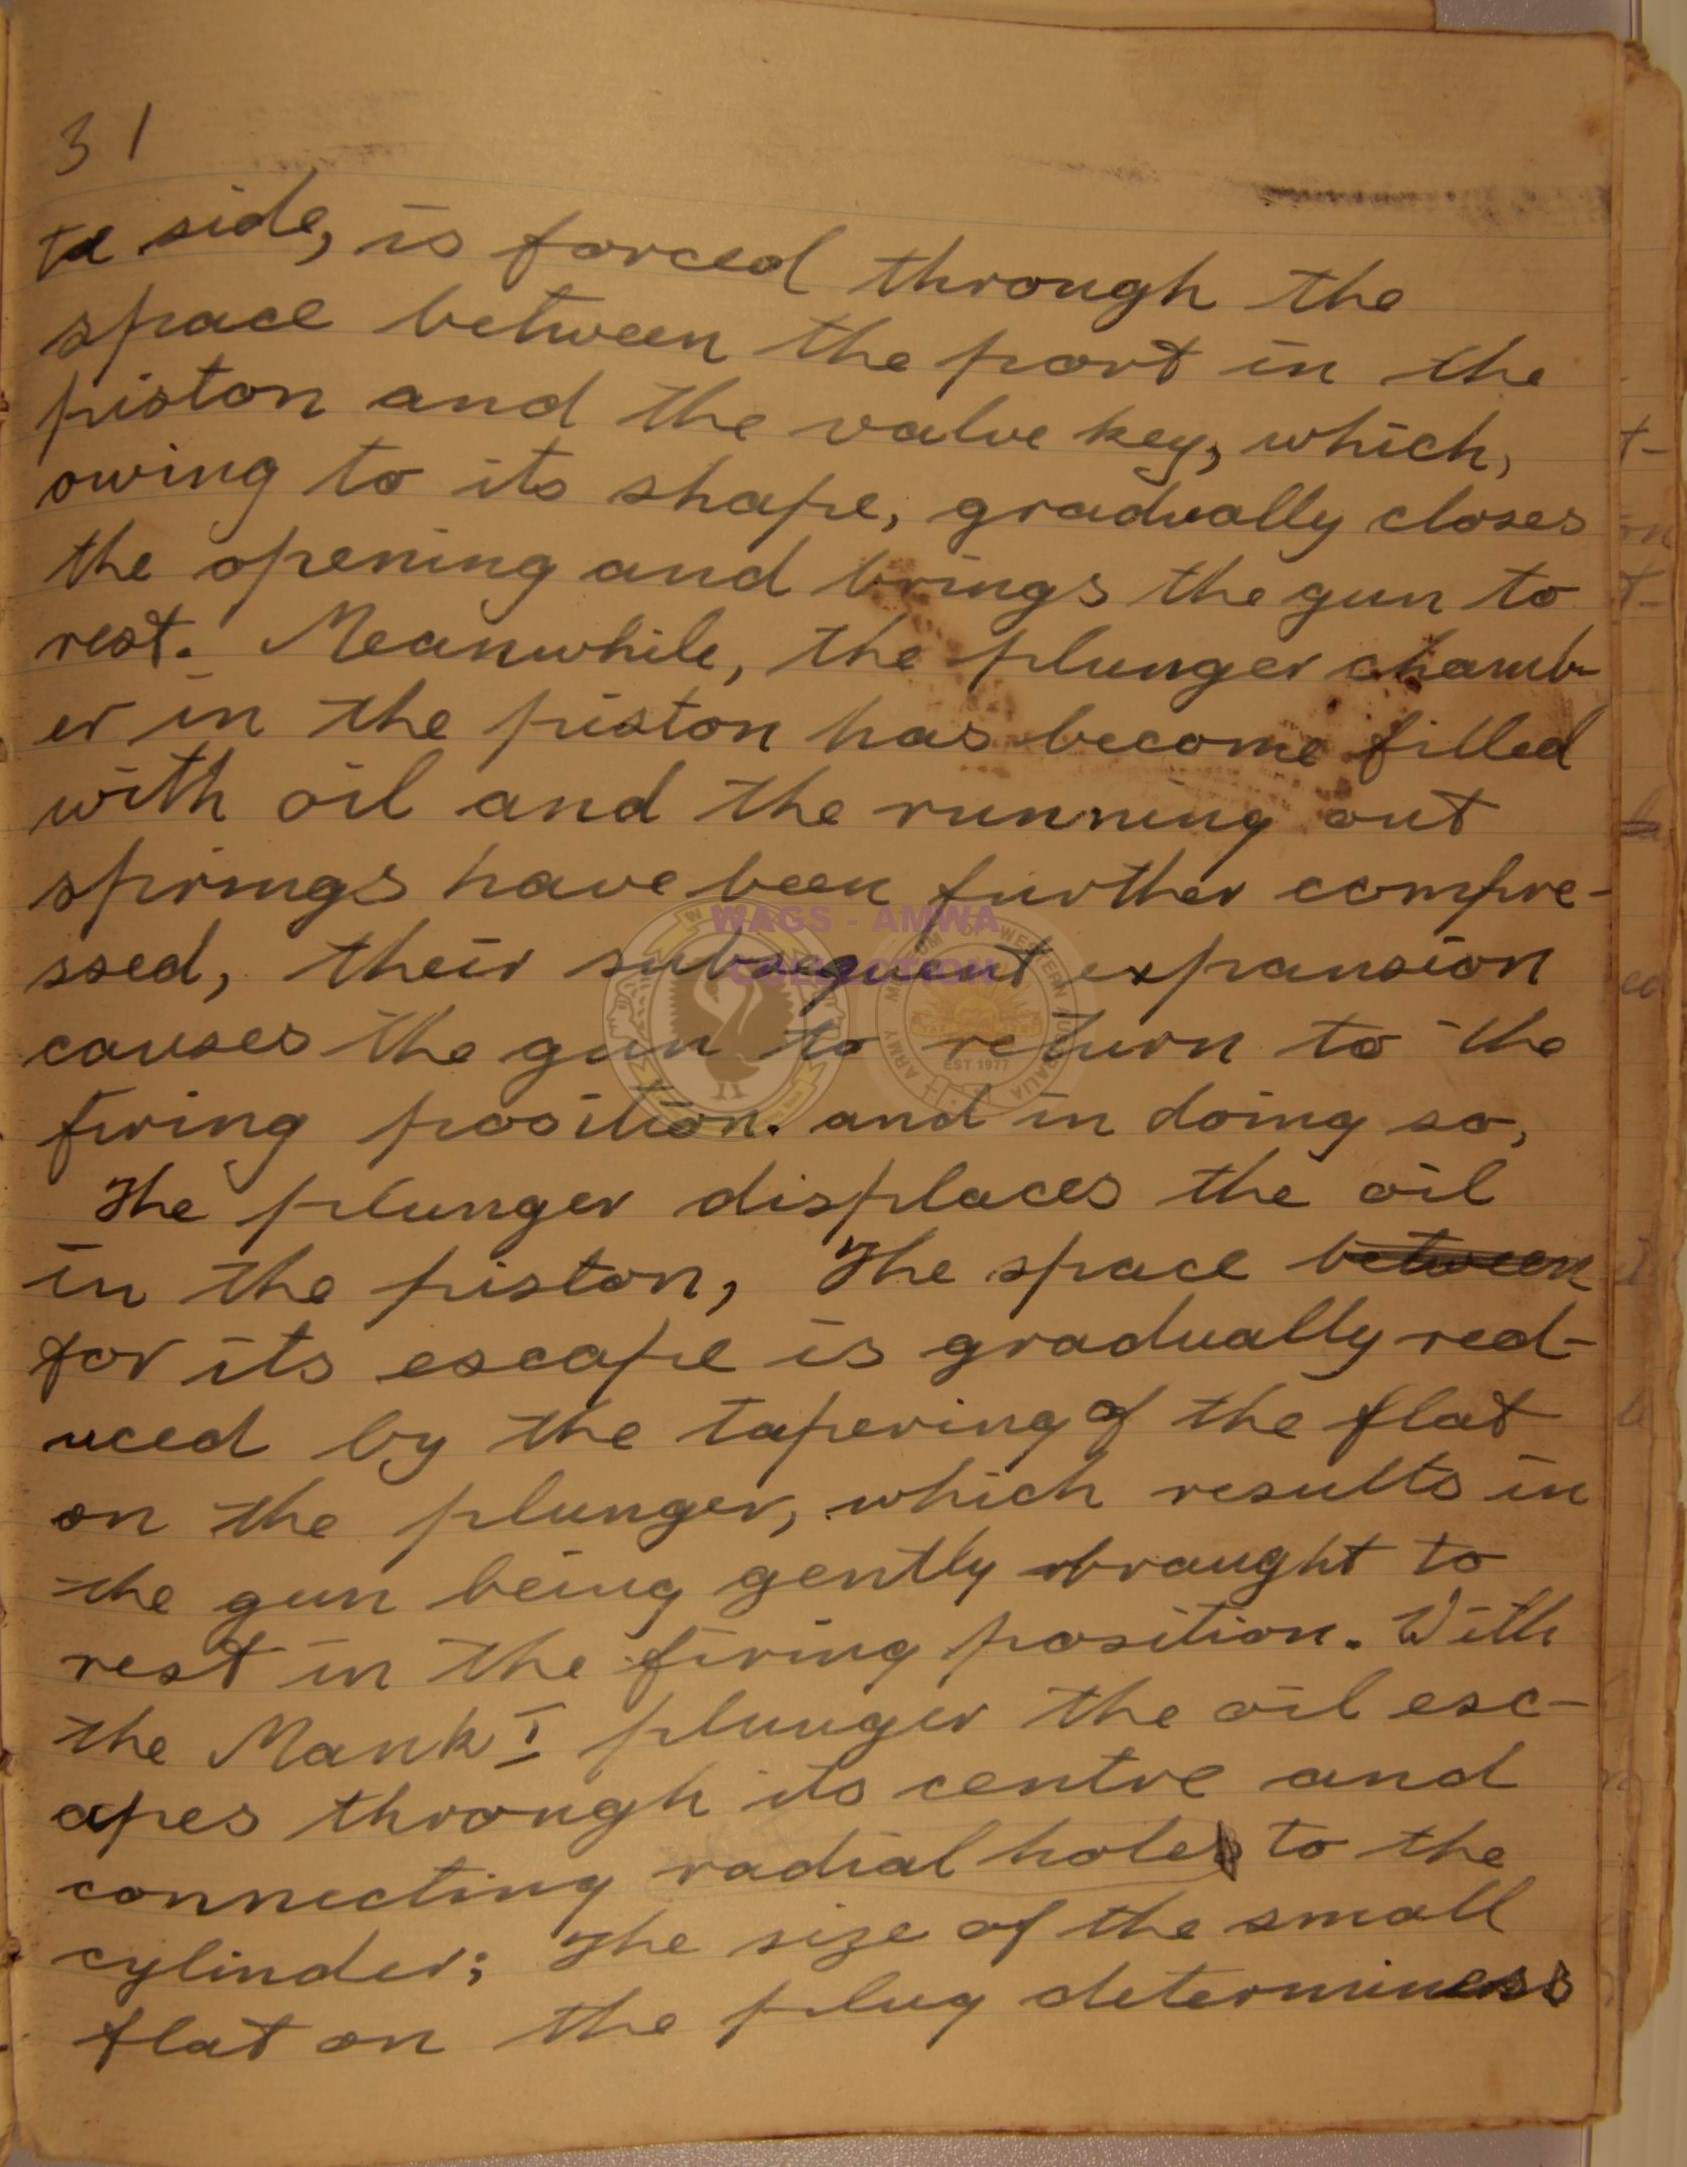 31
te side, is forced through the
space between the port in the
piston and the valve key, which,
owing to its shape, gradually closes
the opening and brings the gun to
rest. Meanwhile, the plunger chamb-
er in the piston has become filled
with oil and the running out
springs have been further compre-
ssed, their subsequent expansion
causes the gun to return to the
firing position. and in doing so,
The plunger displaces the oil
in the piston, The space between
for its escape is gradually red-
uced by the tapering of the flat
on the plunger, which results in
the gun being gently brought to
rest in the firing position. With
the Mark I plunger the oil esc-
apes through its centre and
connecting radial holes to the
cylinder; The size of the small
flat on the plug determines
WAGS - AMWA
COLLECTION
ARMY MUSEUM OF WESTERN AUSTRALIA
EST 1977